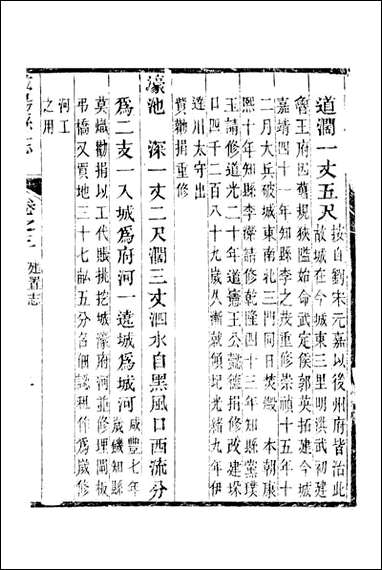 道濶一丈五尺
按自劉宋元嘉以後州府皆治此
故城在今城東三里明洪武初建
魯王府因舊規狹隘始命武定侯郭英拓建今城
嘉靖四十一年知縣李之茂重修崇禎十五年十
二月大兵破城東南北三門同日焚燬 本朝康
熙十年知縣李濚請修乾隆四十三年知縣藍璞
玉請修道光二十年道憲王公懿德捐修改建垛
口四千二百八十九歲久漸就傾圮光緒九年伊
達川太守出
貲勸捐重修
濠池 深一丈二尺濶三丈泗水自黑風口西流分
爲二支一入城爲府河一遶城爲城河
咸豐七年
歲磯知縣
莫熾勸捐以工代賑挑挖城濠府河並修理閘板
弔橋又買地三十七畝五分各佃認租作爲歲修
河工
之用
卷之三 建置志